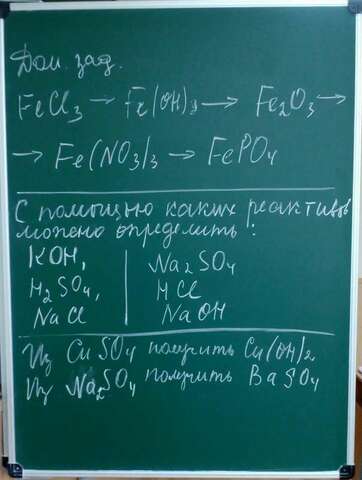 Дом. зад.
FeCl3 → Fe(OH)3 → Fe2O3 →
→ Fe(NO3)3 → FePO4
С помощью каких реактивов
можно определить:
KOH, | Na2SO4
H2SO4, | HCl
NaCl | NaOH
Из CuSO4 получить Cu(OH)2
Из Na2SO4 получить BaSO4